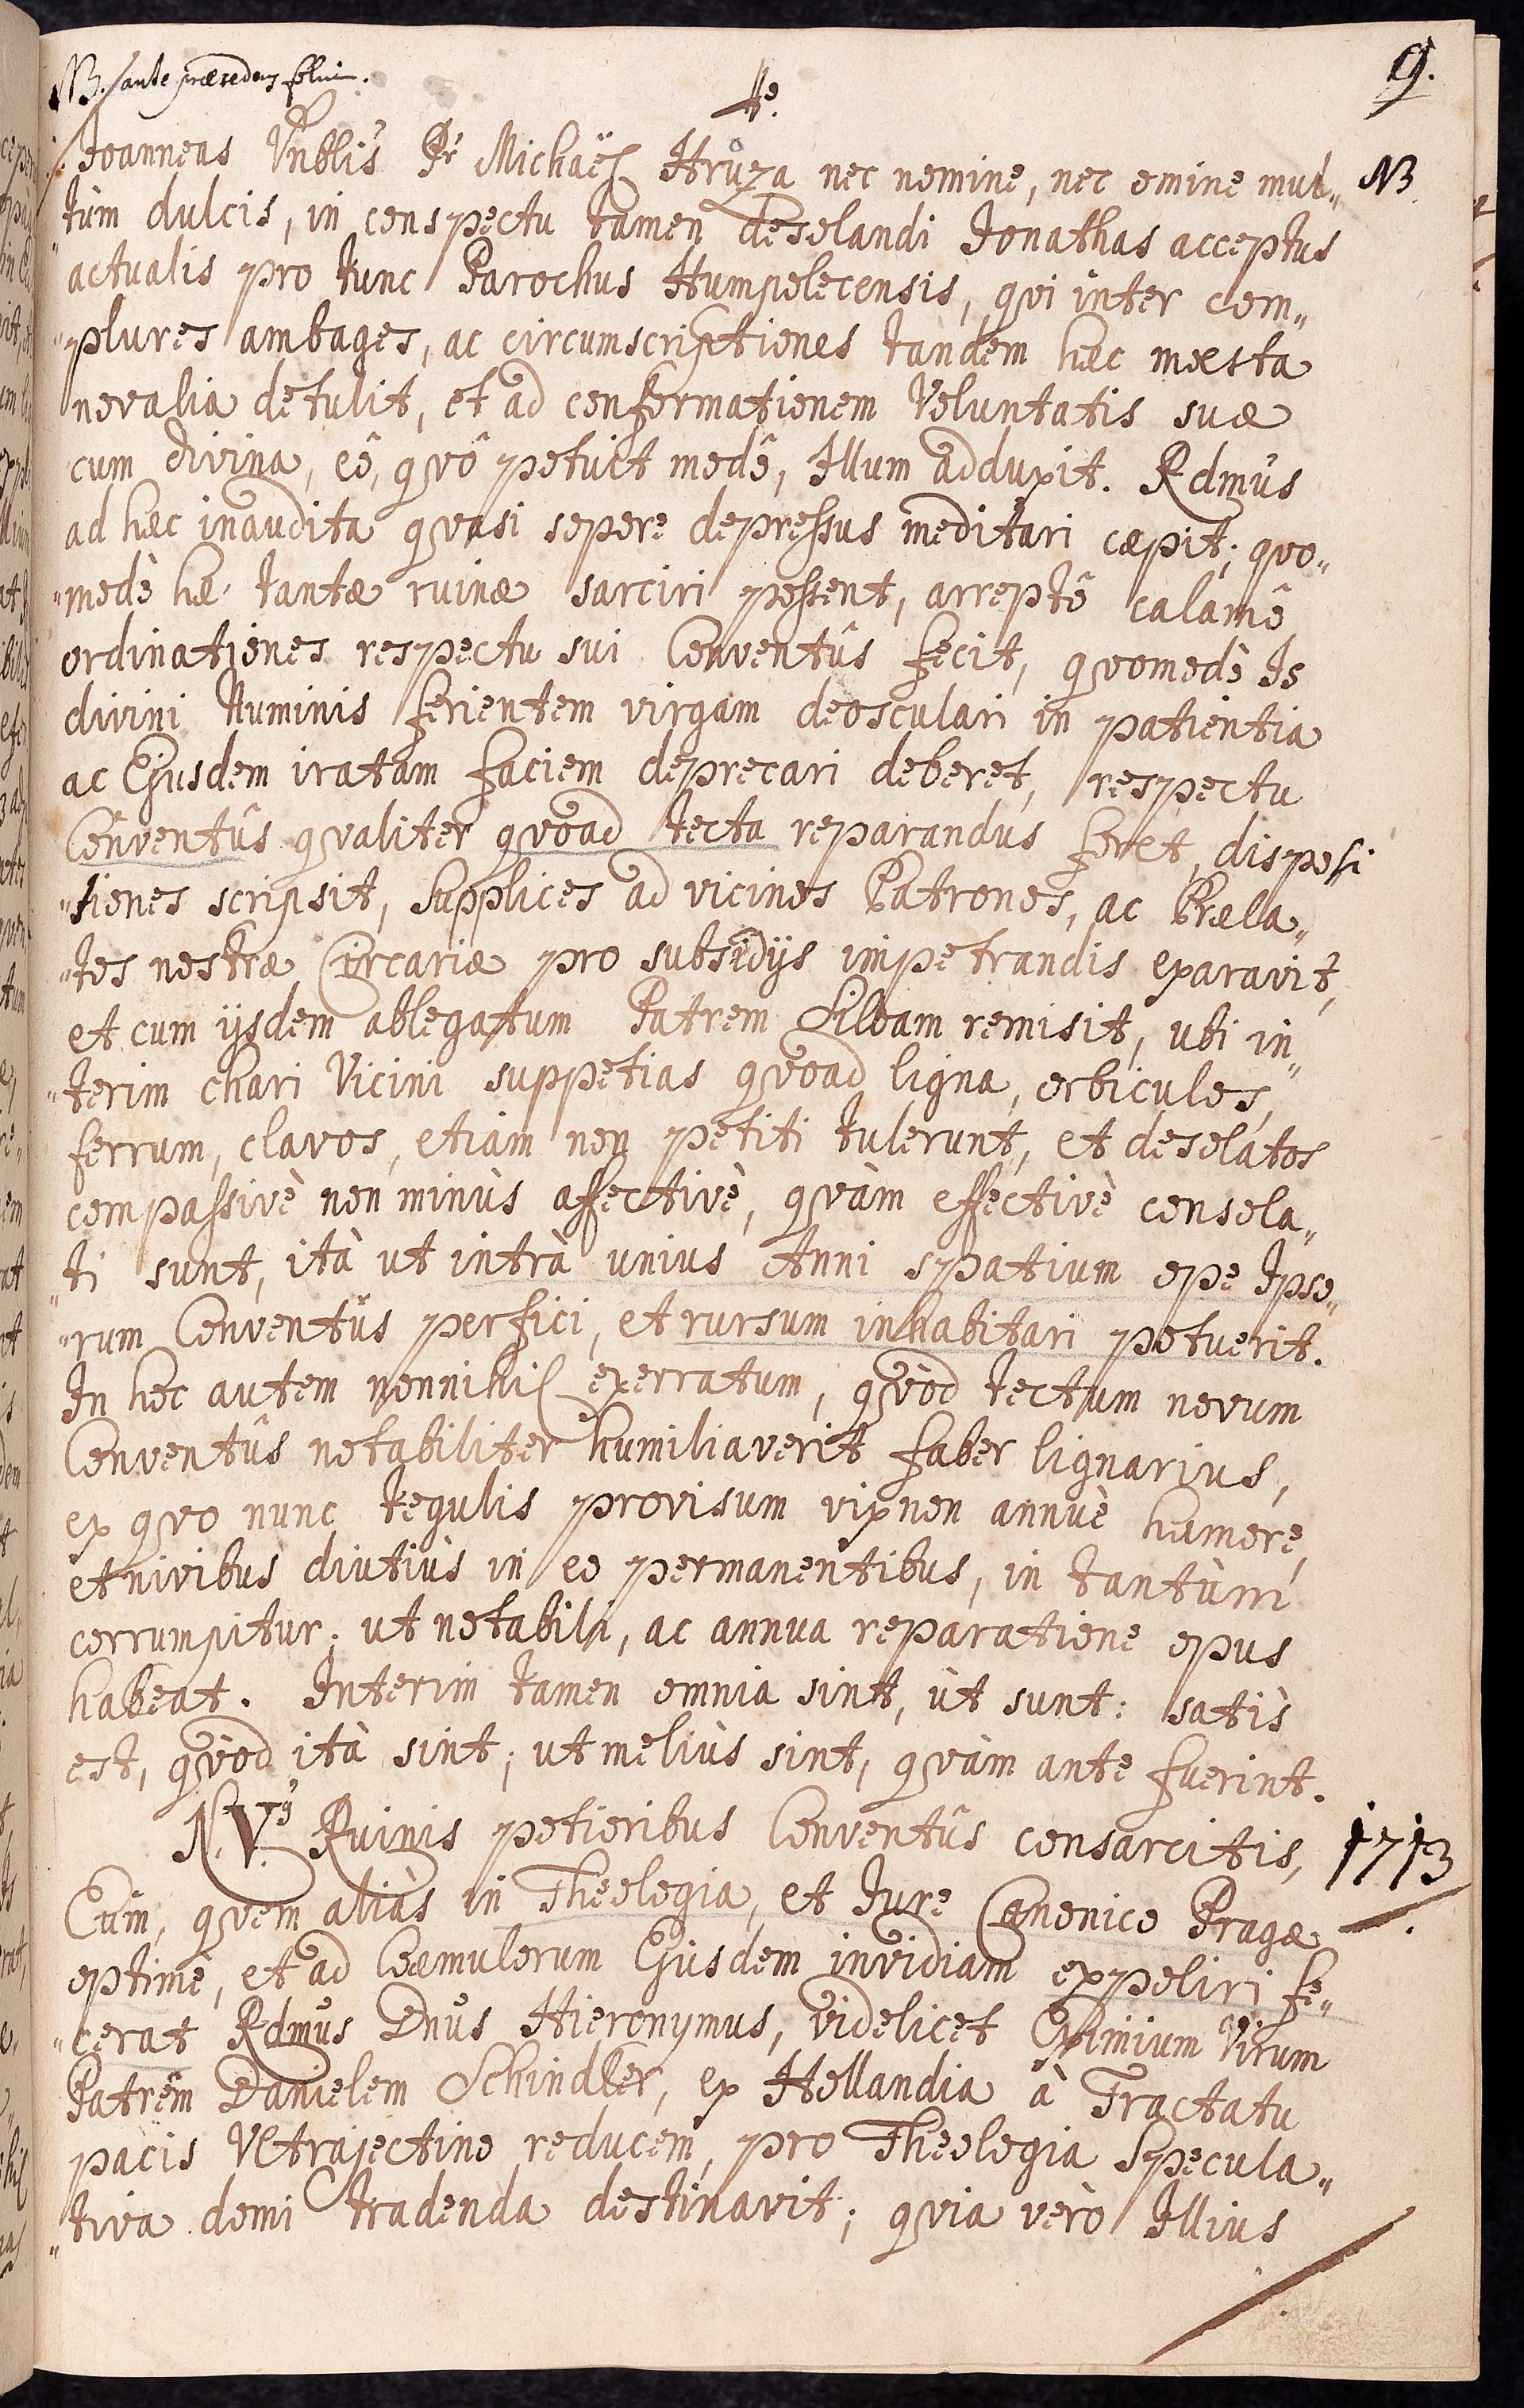 NB. ante præcedens folium.
9.
4º.
Joanneas Vnblis Pr Michaël Hrůza nec nomine, nec omine mul„ NB
„tùm dulcis, in conspectu tamen desolandi Jonathas acceptus
actualis pro tunc Parochus Humpolecensis, qvi inter com„
„plures ambages, ac circumscriptiones tandem hæc mœsta
novalia detulit, et ad conformationem Voluntatis suæ
cum divina, eô, qvô potuit modô, Illum adduxit. Rdmus
ad hæc inaudita qvasi sopore depressus meditari cœpit; qvo„
„modò hæ tantæ ruinæ sarciri possent, arreptô calamô
ordinationes respectu sui Conventûs fecit, qvomodò Is
divini Numinis ferientem virgam deosculari in patientia
ac Ejusdem iratam faciem deprecari deberet, respectu
Conventûs qvaliter qvoad tecta reparandus foret, disposi
„tiones scripsit, Supplices ad vicinos Patronos, ac Præla„
„tos nostræ Circariæ pro subsidijs impetrandis exaravit,
et cum ijsdem ablegatum Patrem Silbam remisit, ubi in„
„terim chari Vicini suppetias qvoad ligna, orbiculos,
ferrum, clavos, etiam non petiti tulerunt, et desolatos
compassivè non minùs affectivè, qvàm effectivè consola„
„ti sunt, ità ut intrà unius Anni spatium ope Ipso„
„rum Conventûs perfici, et rursum inhabitari potuerit.
In hoc autem nonnihil exerratum, qvòd tectum novum
Conventûs notabiliter humiliaverit faber lignarius,
ex qvo nunc tegulis provisum vix non annuè humore,
et nivibus diutiùs in eo permanentibus, in tantùm
corrumpitur; ut notabili, ac annua reparatione opus
habeat. Interim tamen omnia sint, ùt sunt: satiùs
est, qvòd ità sint; ut meliùs sint, qvàm ante fuerint.
N. V. Ruinis potioribus Conventûs consarcitis, 1713
Eum, qvem aliàs in Theologia, et Jure Canonico Pragæ
optimè, et ad Coæmulorum Ejusdem invidiam expoliri fe„
„cerat Rdmus Dnus Hieronymus, videlicet Eximium Virum
Patrem Danielem Schindler, ex Hollandia à Tractatu
pacis Vltrajectino reducem, pro Theologia Specula„
„tiva domi tradenda destinavit; qvia verò Illius